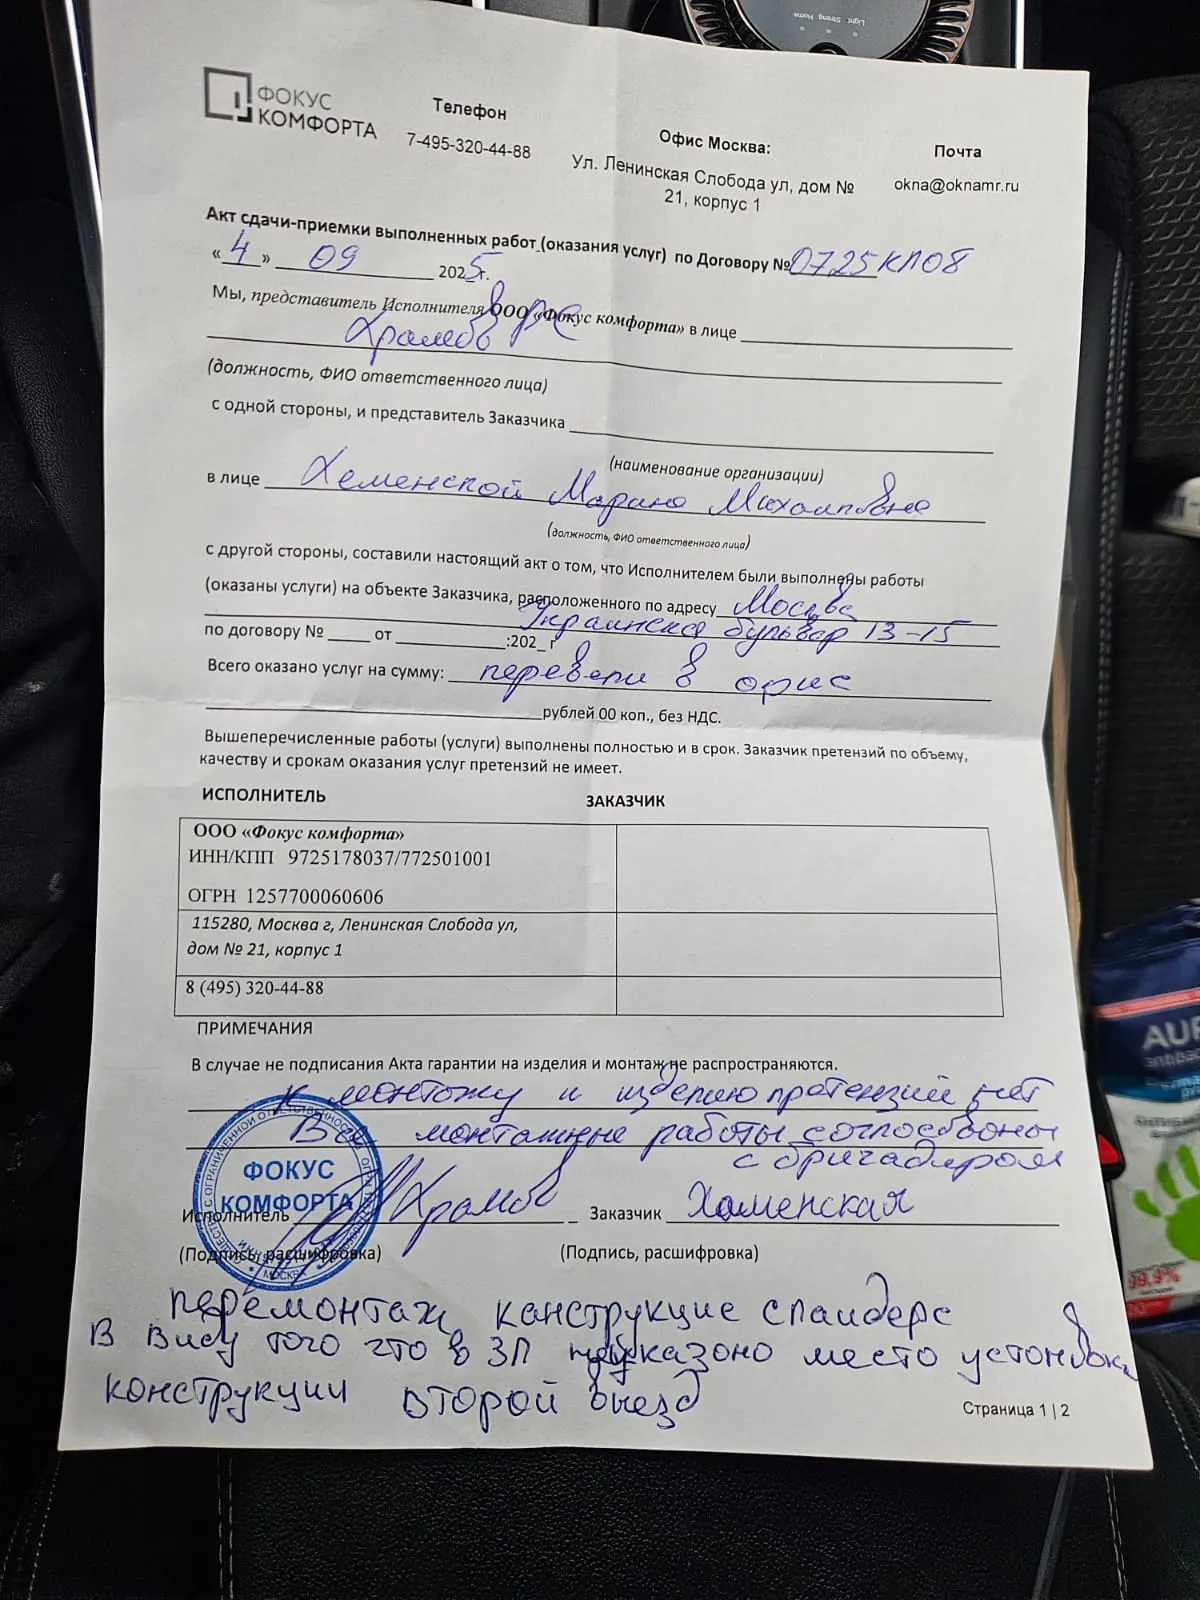 Light Strong Home
ФОКУС
КОМФОРТА
Телефон
7-495-320-44-88
Офис Москва:
Ул. Ленинская Слобода ул, дом №
21, корпус 1
Почта
okna@oknamr.ru
Акт сдачи-приемки выполненных работ (оказания услуг) по Договору № 0725КП08
«4» 09 2025г.
Мы, представитель Исполнителя ООО «Фокус комфорта» в лице
Храмов ВС
(должность, ФИО ответственного лица)
с одной стороны, и представитель Заказчика
(наименование организации)
в лице Хеменской Марино Михаиловне
(должность, ФИО ответственного лица)
с другой стороны, составили настоящий акт о том, что Исполнителем были выполнены работы
(оказаны услуги) на объекте Заказчика, расположенного по адресу Москва
Украинска бульвар 13-15
по договору № ____ от ________:202_ г
Всего оказано услуг на сумму: перевели в офис
рублей 00 коп., без НДС.
Вышеперечисленные работы (услуги) выполнены полностью и в срок. Заказчик претензий по объему,
качеству и срокам оказания услуг претензий не имеет.
ИСПОЛНИТЕЛЬ ЗАКАЗЧИК
ООО «Фокус комфорта»
ИНН/КПП 9725178037/772501001
ОГРН 1257700060606
115280, Москва г, Ленинская Слобода ул,
дом № 21, корпус 1
8 (495) 320-44-88
ПРИМЕЧАНИЯ
В случае не подписания Акта гарантии на изделия и монтаж не распространяются.
к монтожу и изделию претензий нет
Все монтажные работы соглосвоны
с бригадиром
ФОКУС
КОМФОРТА
МОСКВА
Исполнитель Храмов Заказчик Хаменская
(Подпись, расшифровка) (Подпись, расшифровка)
перемонтаж конструкцие спайдерс
В виду того что в ЗП указоно место устоновки
конструкции второй выезд
Страница 1 | 2
99,9%